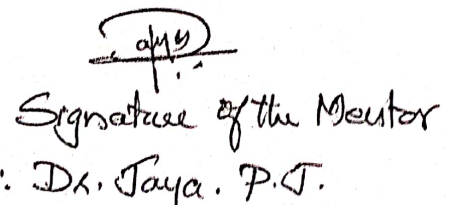 Signature of the Mentor
: Dr. Jaya. P.J.